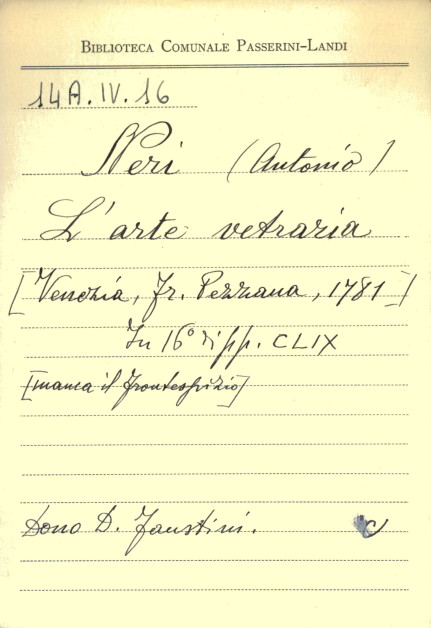 BIBLIOTECA COMUNALE PASSERINI-LANDI
14A.IV.16
Neri (Antonio)
L'arte vetraria
[Venezia, Fr. Pezzana, 1781]
In 16° di pp. CLIX
[manca il frontespizio]
Dono D. Faustini.